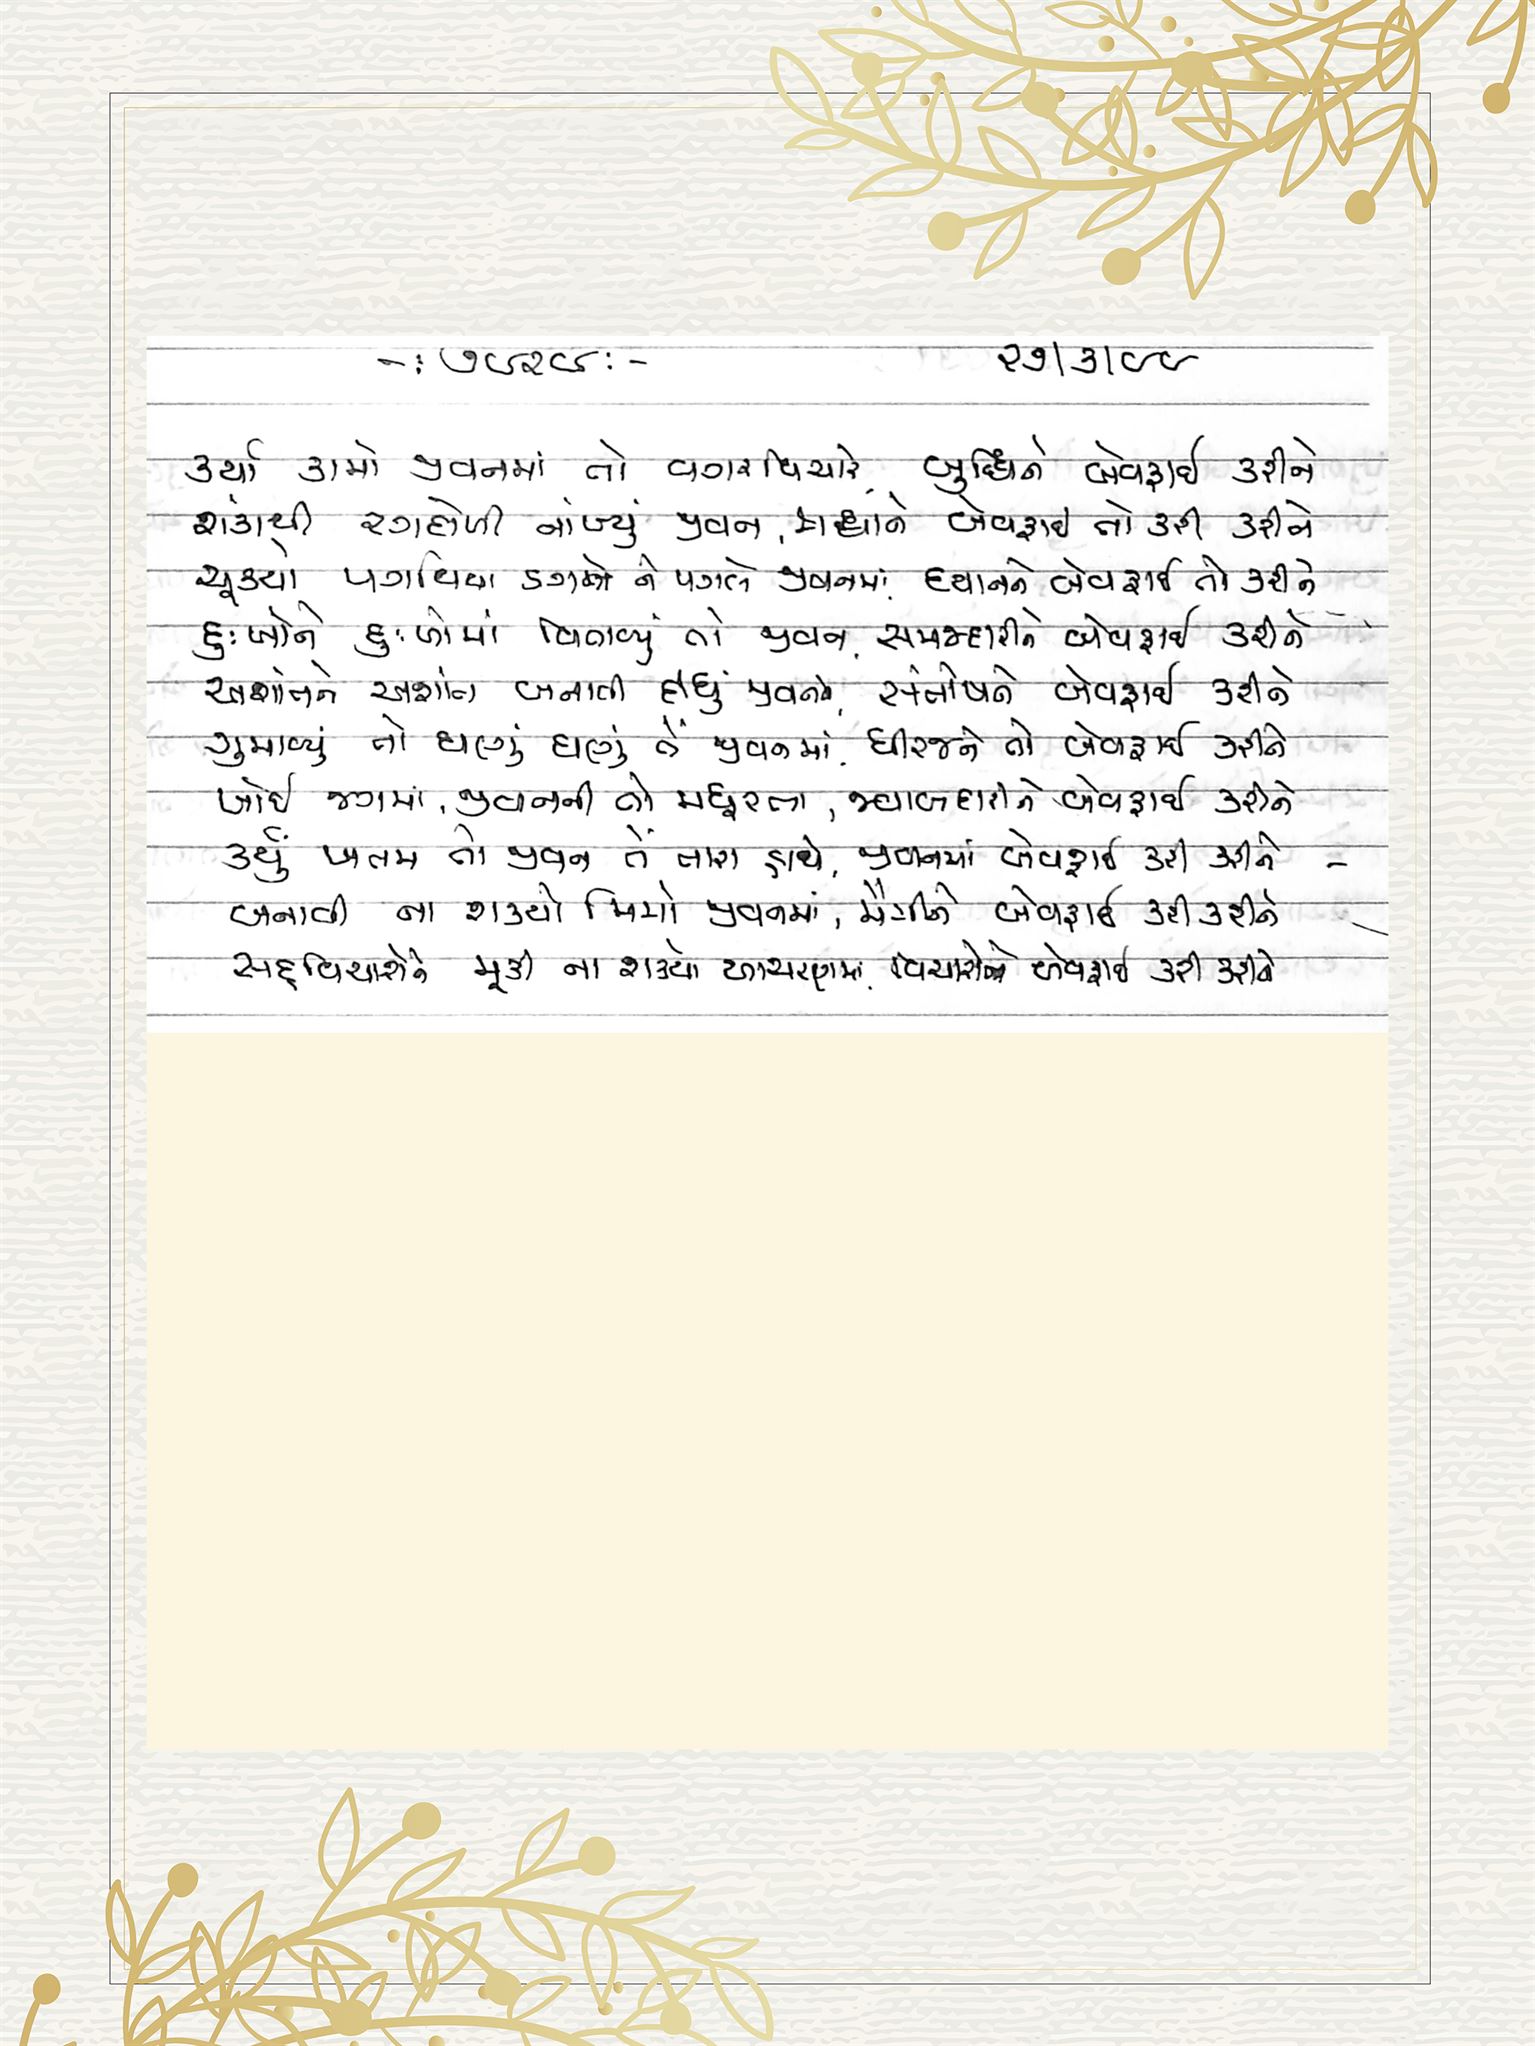 -: ૭૮૨૮ :- ૨૭/૩/૯૯
કર્યા કામો જીવનમાં તો વગરવિચારે, બુદ્ધિને બેવફાઈ કરીને
શંકાથી રગદોળી નાંખ્યું જીવન, શ્રદ્ધાને બેવફાઈ તો કરી કરીને
ચૂક્યો પગથિયા ડગલે ને પગલે જીવનમાં, ધ્યાનને બેવફાઈ તો કરીને
દુઃખોને દુઃખોમાં વિતાવ્યું તો જીવન, સમજદારીને બેવફાઈ કરીને
અશાંતને અશાંત બનાવી દીધું જીવનને, સંતોષને બેવફાઈ કરીને
ગુમાવ્યું તો ઘણું ઘણું તેં જીવનમાં, ધીરજને તો બેવફાઈ કરીને
ખોઈ જગમાં, જીવનની તો મધૂરતા, જવાબદારીને બેવફાઈ કરીને
કર્યું ખતમ તો જીવન તેં તારા હાથે, જીવનમાં બેવફાઈ કરી કરીને -
બનાવી ના શક્યો મિત્રો જીવનમાં, મૈત્રીને બેવફાઈ કરી કરીને
સદ્‌વિચારોને મૂકી ના શક્યો આચરણમાં, વિચારોને બેવફાઈ કરી કરીને